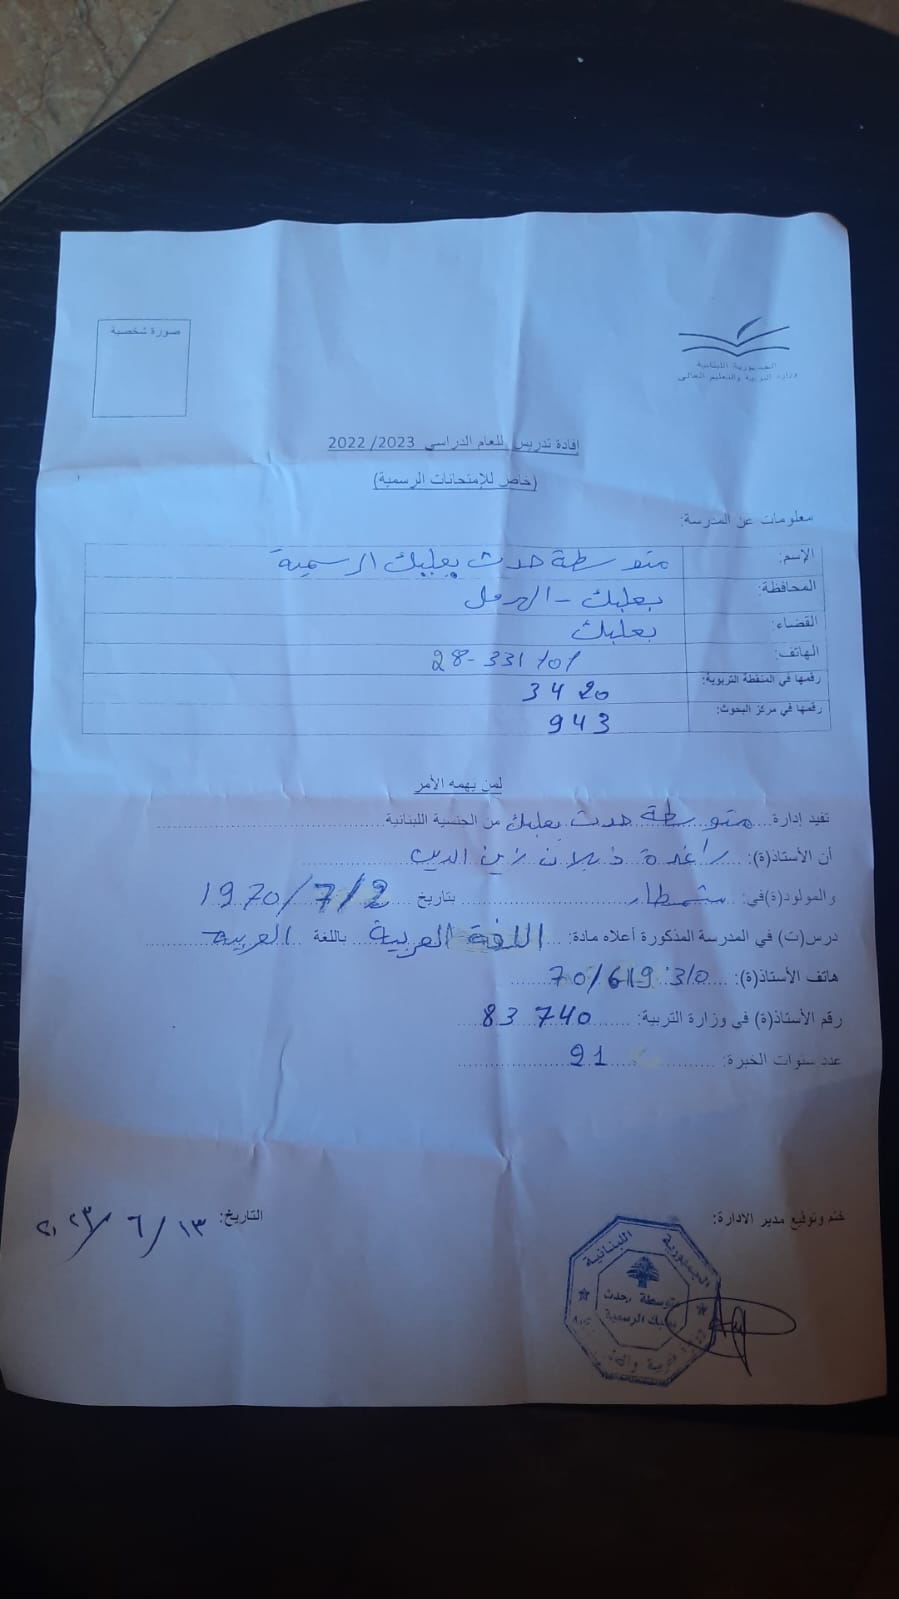 صورة شخصية
الجمهورية اللبنانية
وزارة التربية والتعليم العالي
إفادة تدريس للعام الدراسي 2023/ 2022
(خاص للإمتحانات الرسمية)
معلومات عن المدرسة:
الإسم: متوسطة حدث بعلبك الرسمية
المحافظة: بعلبك - الهرمل
القضاء: بعلبك
الهاتف: 28-331101
رقمها في المنطقة التربوية: 3420
رقمها في مركز البحوث: 943
لمن يهمه الأمر
تفيد إدارة متوسطة حدث بعلبك من الجنسية اللبنانية
أن الأستاذ(ة): راغدة ذبلان زين الدين
والمولود(ة)في: شمطار بتاريخ 1970/7/2
درس(ت) في المدرسة المذكورة أعلاه مادة: اللغة العربية باللغة العربية
هاتف الأستاذ(ة): 70/619310
رقم الأستاذ(ة) في وزارة التربية: 83740
عدد سنوات الخبرة: 21
ختم وتوقيع مدير الادارة:
التاريخ: ١٣ / ٦ / ٢٠٢٣
الجمهورية اللبنانية
متوسطة حدث
بعلبك الرسمية